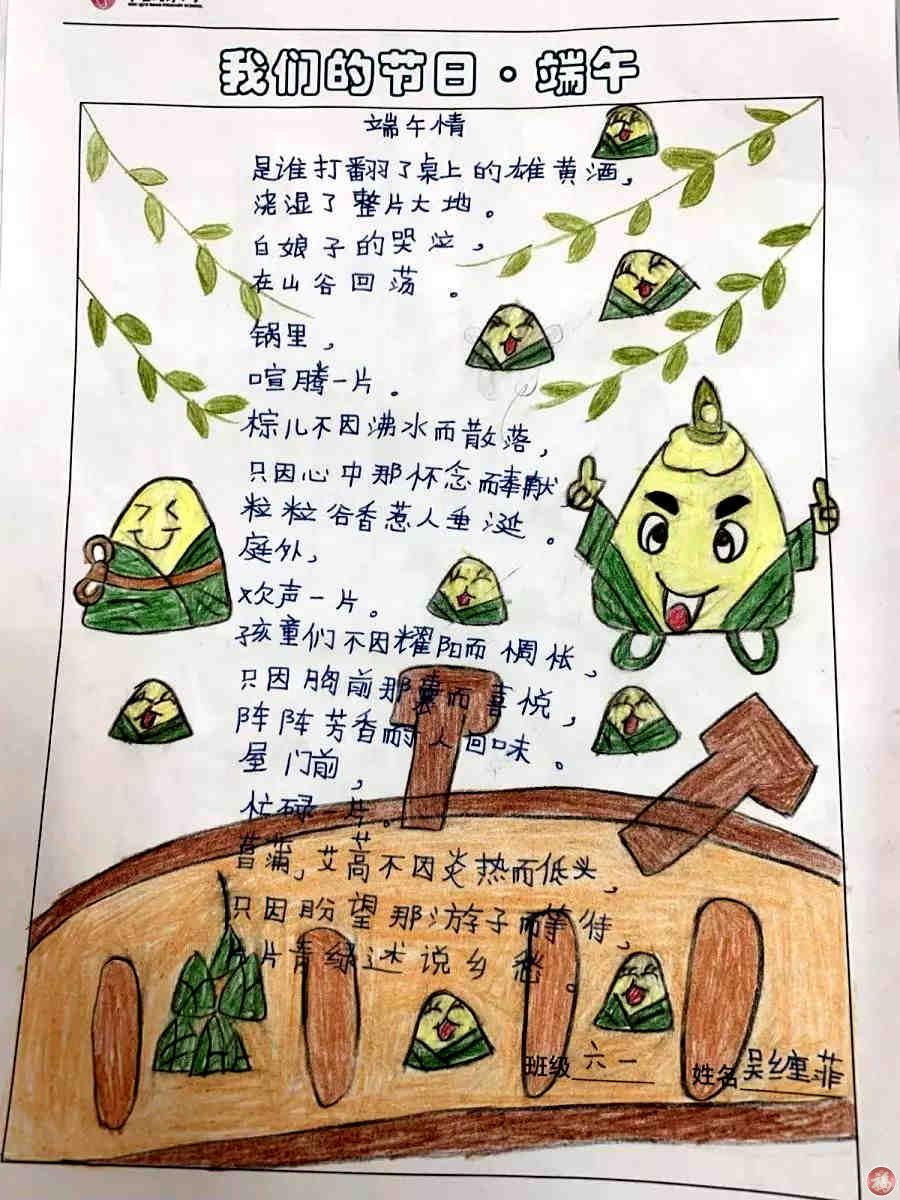 我们的节日·端午
端午情
是谁打翻了桌上的雄黄酒，
浇湿了整片大地。
白娘子的哭泣，
在山谷回荡。
锅里，
喧腾一片。
棕儿不因沸水而散落，
只因心中那怀念而奉献
粒粒谷香惹人垂涎。
庭外，
欢声一片。
孩童们不因耀阳而惆怅，
只因胸前那囊而喜悦，
阵阵芳香耐人回味。
屋门前，
忙碌一片。
菖蒲，艾高不因炎热而低头，
只因盼望那游子而等待，
片片青绿述说乡愁。
班级 六一 姓名 吴 菲
福